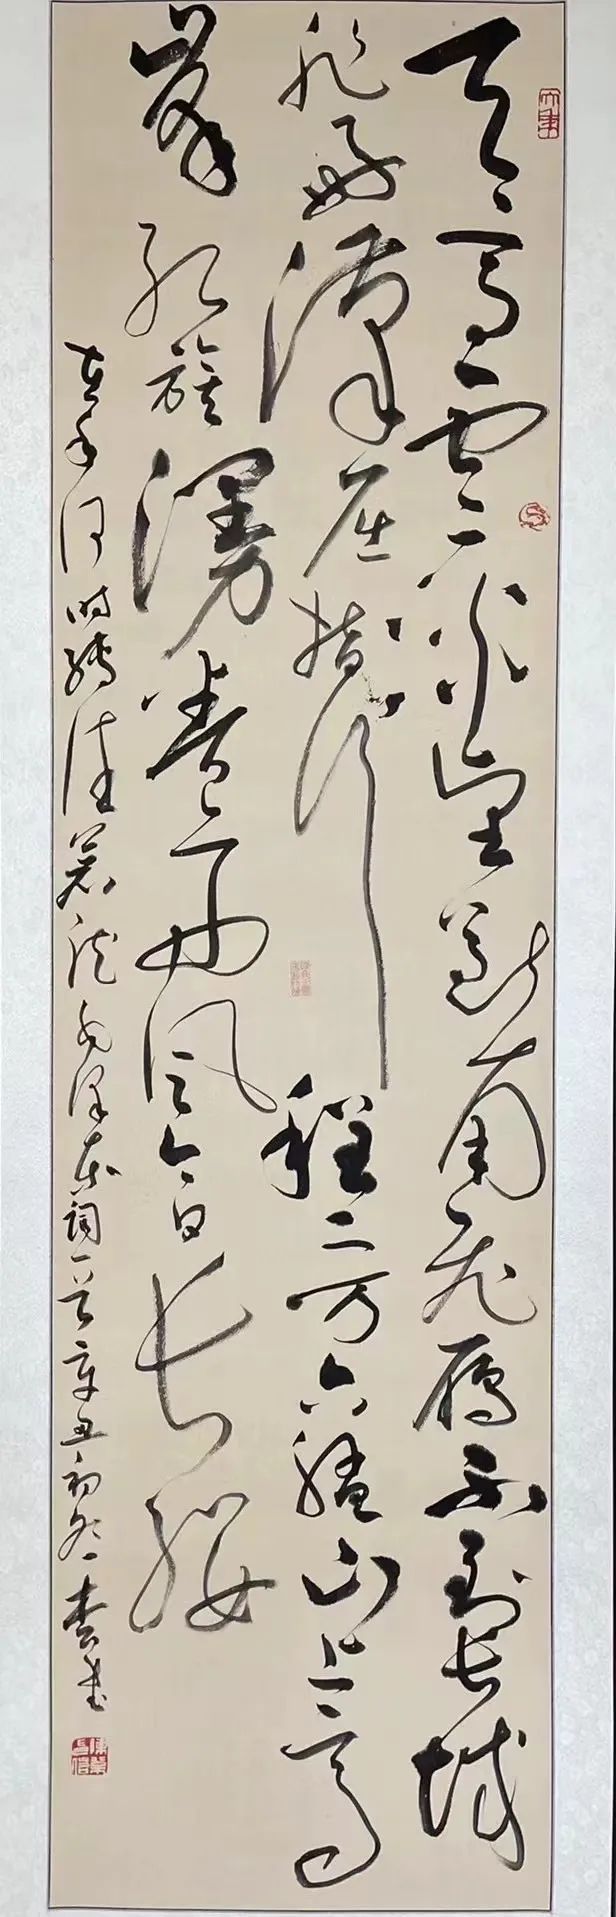 天高云淡望断南飞雁不到长城
非好汉屈指行程二万六盘山上高
峰红旗漫卷西风今日长缨
在手何时缚住苍龙毛泽东词一首辛丑初冬书